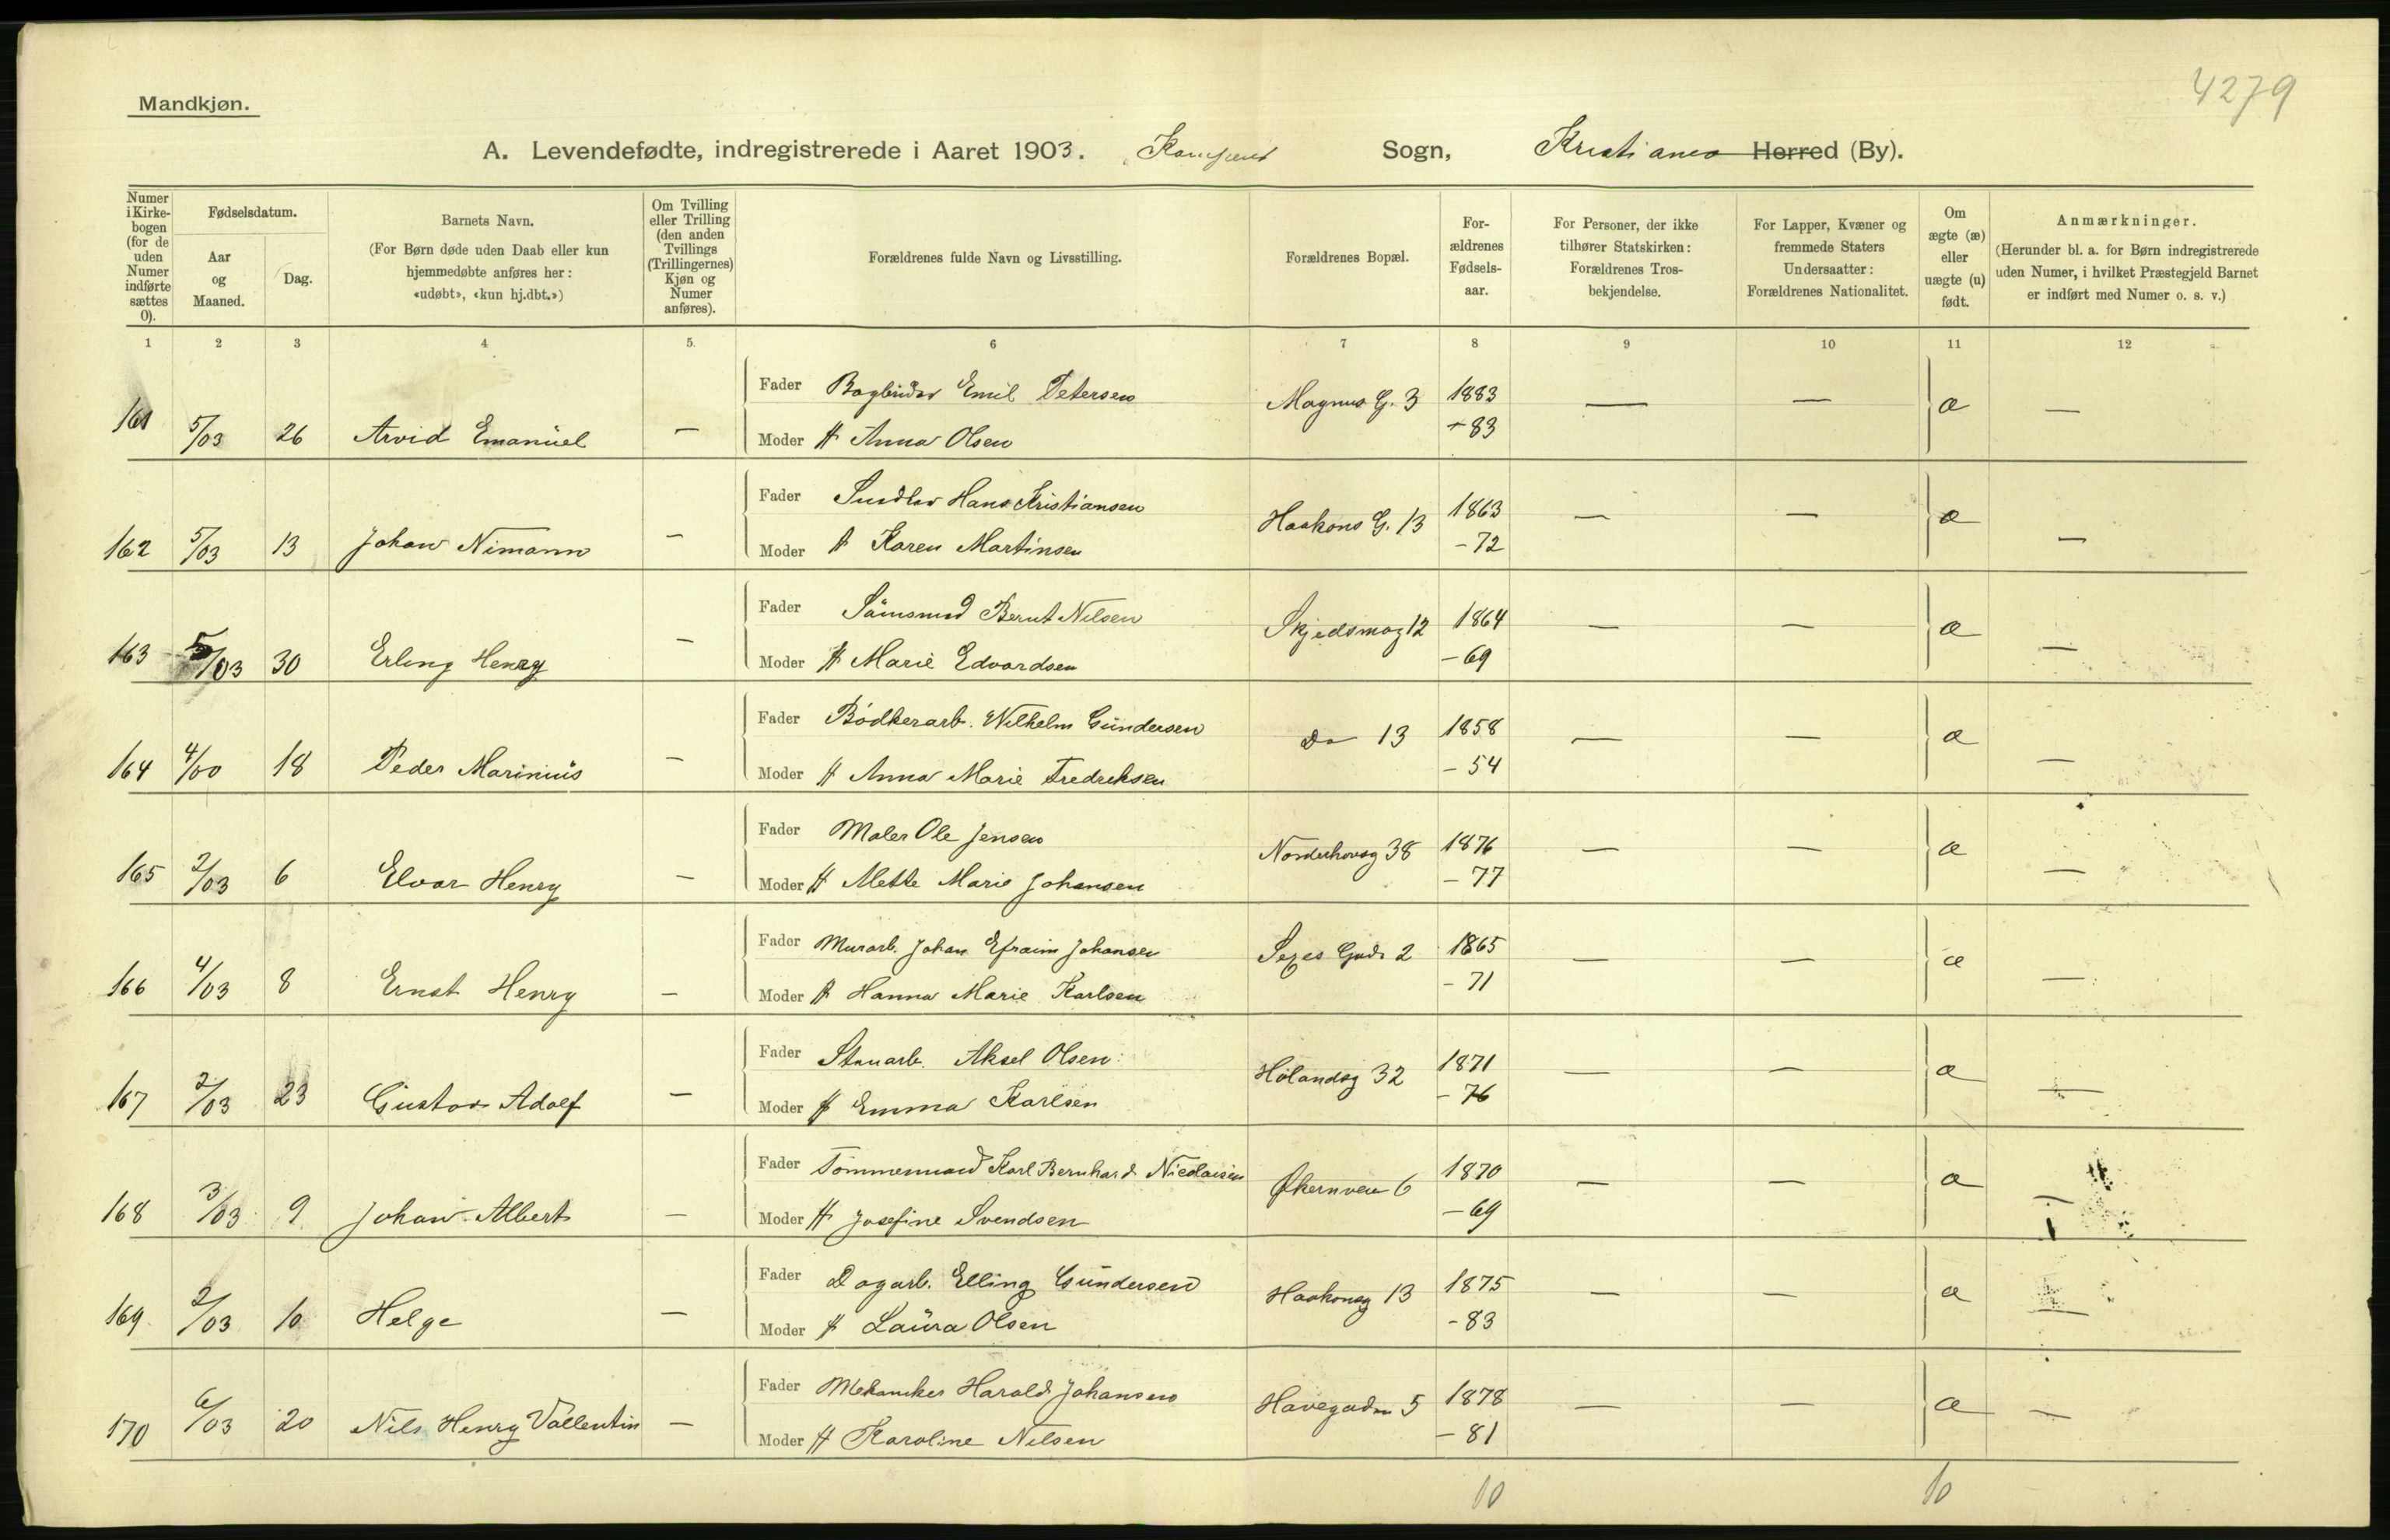 4279
Mandkjøn.
A. Levendefødte, indregistrerede i Aaret 1903. Sogn, Kristiania Herred (By).
Numer i Kirkebogen (for de uden Numer indførte sættes 0).
Fødselsdatum.
Aar og Maaned.
Dag.
Barnets Navn.
(For Børn døde uden Daab eller kun hjemmedøbte anføres her: «udøbt», «kun hj.dbt.»)
Om Tvilling eller Trilling (den anden Tvillings (Trillingernes) Kjøn og Numer anføres).
Forældrenes fulde Navn og Livsstilling.
Forældrenes Bopæl.
Forældrenes Fødselsaar.
For Personer, der ikke tilhører Statskirken: Forældrenes Trosbekjendelse.
For Lapper, Kvæner og fremmede Staters Undersaatter: Forældrenes Nationalitet.
Om ægte (æ) eller uægte (u) født.
Anmærkninger.
(Herunder bl. a. for Børn indregistrerede uden Numer, i hvilket Præstegjeld Barnet er indført med Numer o. s. v.)
1 2 3 4 5. 6 7 8 9 10 11 12
Fader Bogbinder Emil Petersen Magnus G. 3 1883 — — æ —
161 5/03 26 Arvid Emanuel — Moder H Anna Olsen - 83
Fader Hans Kristiansen Haakons G. 13 1863 — — æ —
162 5/03 13 Johan Nimann — Moder H Karen Martinsen - 72
Fader Bernt Nilsen Skjedsmog 12 1864 — — æ —
163 5/03 30 Erling Henry — Moder H Marie Edvardsen - 69
Fader Bødkerarb. Wilhelm Gundersen Do 13 1858 — — æ —
164 4/00 18 Peder Marinius — Moder H Anna Marie Fredriksen - 54
Fader Maler Ole Jensen Norderhovsg 38 1876 — — æ —
165 2/03 6 Elvar Henry — Moder H Mette Marie Johansen - 77
Fader Murarb. Johan Efraim Johansen 2 1865 — — æ —
166 4/03 8 Ernst Henry — Moder H Hanna Marie Karlsen - 71
Fader Stenarb. Aksel Olsen Hølandsg 32 1871 — — æ —
167 2/03 23 Gustav Adolf — Moder H Emma Karlsen - 76
Fader Tømmermand Karl Bernhard Nicolaisen Økernveien 6 1870 — — æ —
168 3/03 9 Johan Albert — Moder H Josefine Svendsen - 69
Fader Dagarb. Elling Gundersen Haakonsg 13 1875 — — æ —
169 2/03 10 Helge — Moder H Laura Olsen - 83
Fader Mekaniker Harald Johansen Havegaden 5 1878 — — æ —
170 6/03 20 Nils Henry Vallentin — Moder H Karoline Nilsen - 81
10 10